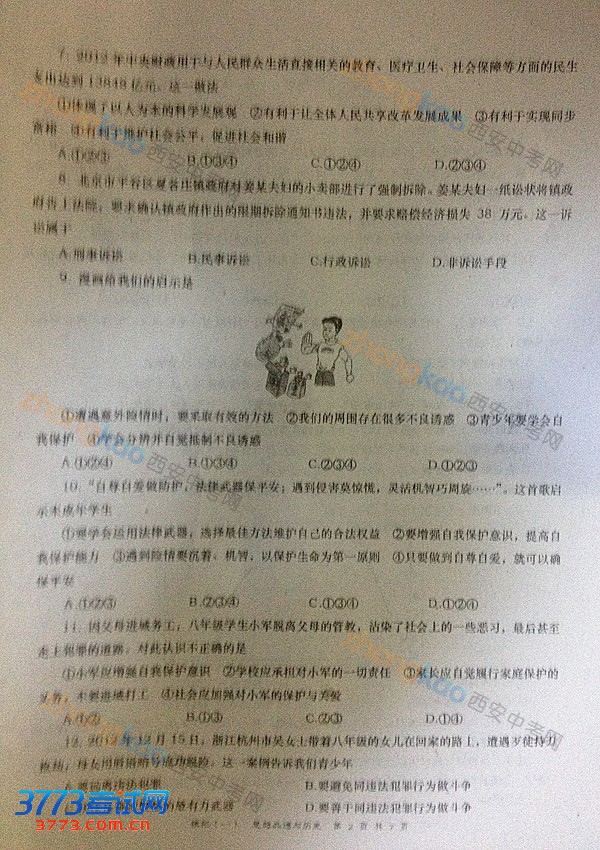 7. 2012年中央财政用于与人民群众生活直接相关的教育、医疗卫生、社会保障等方面的民生
支出达到13848亿元。这一做法
①体现了以人为本的科学发展观 ②有利于让全体人民共享改革发展成果 ③有利于实现同步
富裕 ④有利于维护社会公平，促进社会和谐
A.①②③ B.①③④ C.①②④ D.②③④
8. 北京市平谷区夏各庄镇政府对姜某夫妇的小卖部进行了强制拆除。姜某夫妇一纸讼状将镇政
府告上法院，要求确认镇政府作出的限期拆除通知书违法，并要求赔偿经济损失 38 万元。这一诉
讼属于
A.刑事诉讼 B.民事诉讼 C.行政诉讼 D.非诉讼手段
9. 漫画给我们的启示是
①遭遇意外险情时，要采取有效的方法 ②我们的周围存在很多不良诱惑 ③青少年要学会自
我保护 ④学会分辨并自觉抵制不良诱惑
A.①②④ B.①③④ C.②③④ D.①②③
10. “自尊自爱做防护，法律武器保平安；遇到侵害莫惊慌，灵活机智巧周旋……”。这首歌启
示未成年学生
①要学会运用法律武器，选择最佳方法维护自己的合法权益 ②要增强自我保护意识，提高自
我保护能力 ③遇到险情要沉着、机智，以保护生命为第一原则 ④只要做到自尊自爱，就可以确
保平安
A.①②③ B.②③④ C.①③④ D.①②④
11. 因父母进城务工，八年级学生小军脱离父母的管教，沾染了社会上的一些恶习，最后甚至
走上犯罪的道路。对此认识不正确的是
①小军应增强自我保护意识 ②学校应承担对小军的一切责任 ③家长应自觉履行家庭保护的
义务，不要进城打工 ④社会应加强对小军的保护与关爱
A.①② B.①③ C.②③ D.①④
12. 2012年12月15日，浙江杭州市吴女士带着八年级的女儿在回家的路上，遭遇歹徒持刀
抢劫，母女用暗语暗号成功脱险。这一案例告诉我们青少年
A.要远离违法犯罪 B.要避免同违法犯罪行为做斗争
的最有力武器 D.要善于同违法犯罪行为做斗争
模拟(一) 思想品德与历史 第 2 页 共 7 页
3773考试网
3773.com.cn
zhongkao西安中考网
zhongkao西安中考网
zhongkao西安中考网
zhongkao西安中考网
zhongkao西安中考网
zhongkao西安中考网